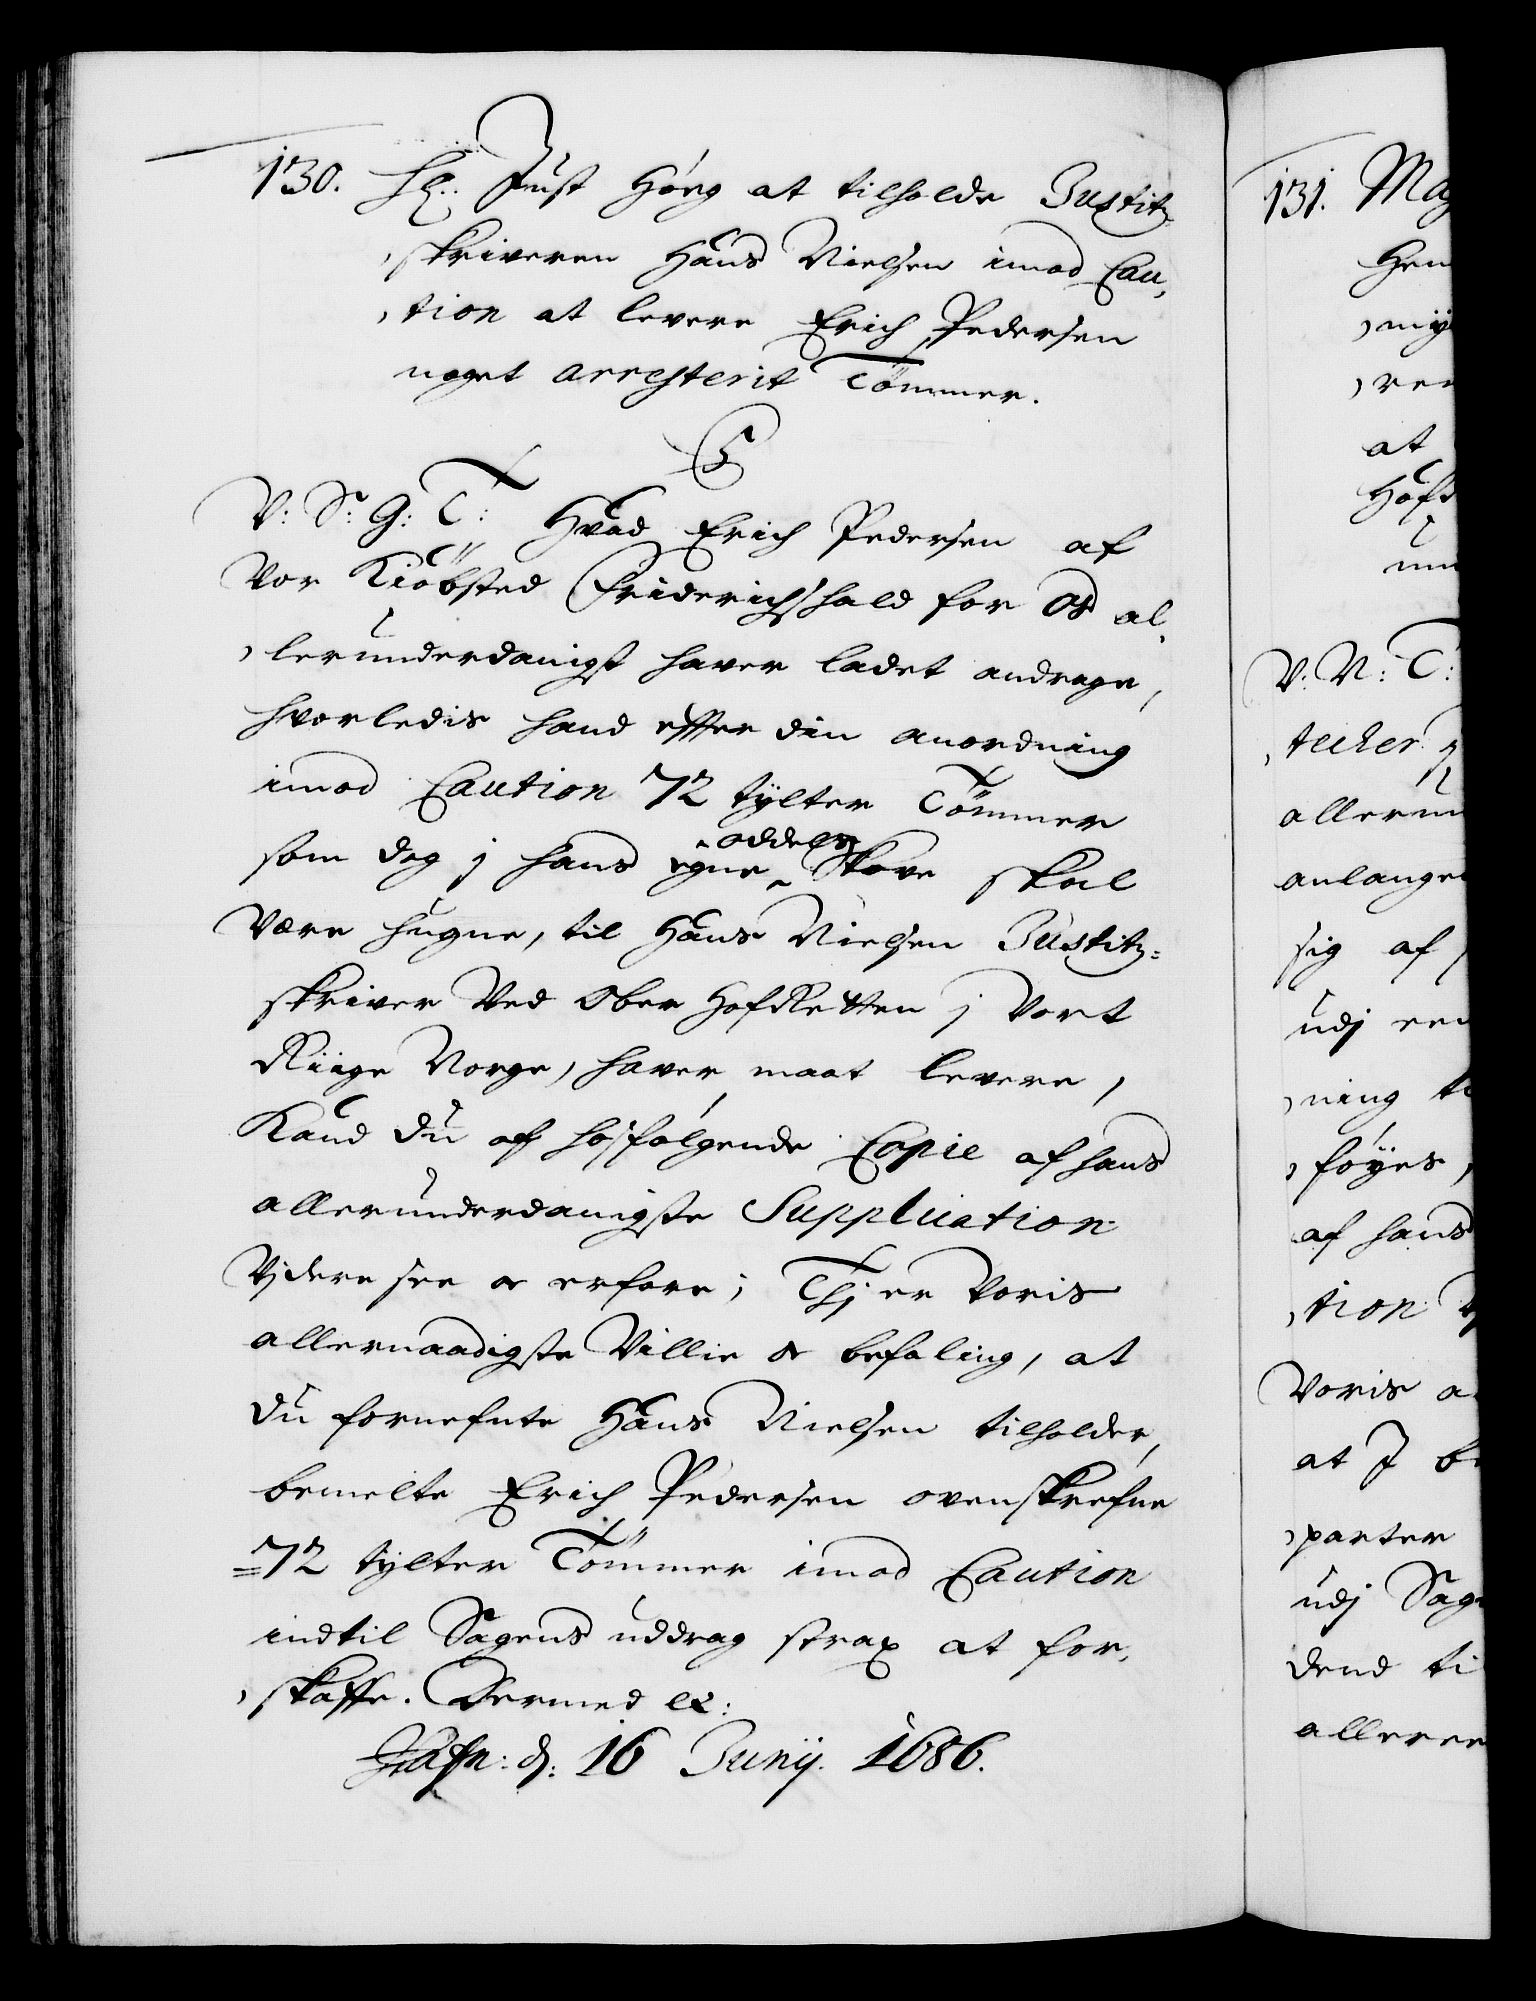 130. Hr: Just Høeg at tilholde Justitz
skriveren Hans Nielsen imod Cau,
,tion at levere Erich Pedersen
noget arresterit Tömmer.
C5
V: S: G: T: Hvad Erich Pedersen af
Vor Kiöbsted Friderichshald for Os al,
,lerunderdanigst haver ladet andrage,
hvorledis hand effter din anordning
imod Caution 72 tÿlter Tömmer
som dog j hans egne oddels Skove skal
være hugne, til Hans Nielsen Justitz=
skriver Ved Ober HofRetten j Vort
Riige Norge, haver maat levere,
Kand du af hosfølgende Copie af hans
allerunderdanigste Supplication
Vjdere see oc erfare; Thj er Voris
allernaadigste Villie oc befaling, at
du fornefnte Hans Nielsen tilholder,
bemelte Erich Pedersen ovenskrefne
=72 tÿlter Tömmer imod Caution
indtil Sagens uddrag strax at for,
,skaffe. Dermed etc:
Hafn: d: 16 Junij. 1686.
131. Maj
Hen
,mÿ
,ren
at
Hofr
un
V: N: T:
,tecker
allerun
anlangen
sig af
udj een
,ning t
,føyes,
af hans
,tion
Voris a
at J be
,parter
udj Sag
dend ti
alleree